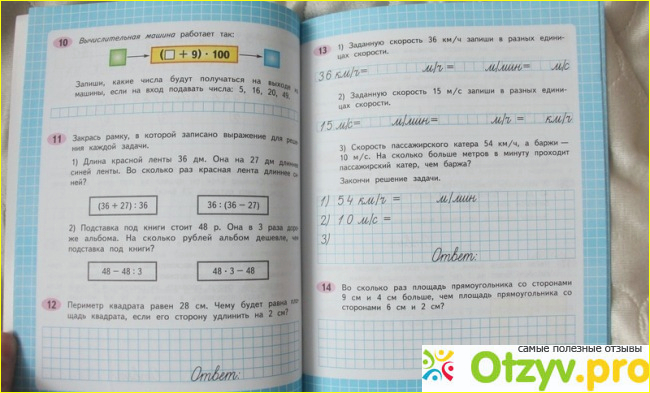 10 Вычислительная машина работает так:
(□ + 9) · 100
Запиши, какие числа будут получаться на выходе из
машины, если на вход подавать числа: 5, 16, 20, 49.
11 Закрась рамку, в которой записано выражение для реше-
ния каждой задачи.
1) Длина красной ленты 36 дм. Она на 27 дм длиннее
синей ленты. Во сколько раз красная лента длиннее си-
ней?
(36 + 27) : 36
36 : (36 − 27)
2) Подставка под книги стоит 48 р. Она в 3 раза доро-
же альбома. На сколько рублей альбом дешевле, чем
подставка под книги?
48 − 48 : 3
48 · 3 − 48
12 Периметр квадрата равен 28 см. Чему будет равна пло-
щадь квадрата, если его сторону удлинить на 2 см?
Ответ:
13 1) Заданную скорость 36 км/ч запиши в разных едини-
цах скорости.
36 км/ч = м/ч = м/мин = м/с
2) Заданную скорость 15 м/с запиши в разных едини-
цах скорости.
15 м/с = м/мин = м/ч = км/ч
3) Скорость пассажирского катера 54 км/ч, а баржи —
10 м/с. На сколько больше метров в минуту проходит
пассажирский катер, чем баржа?
Закончи решение задачи.
1) 54 км/ч = м/мин
2) 10 м/с =
3)
Ответ:
14 Во сколько раз площадь прямоугольника со сторонами
9 см и 4 см больше, чем площадь прямоугольника со
сторонами 6 см и 2 см?
самые полезные отзывы
Otzyv.pro